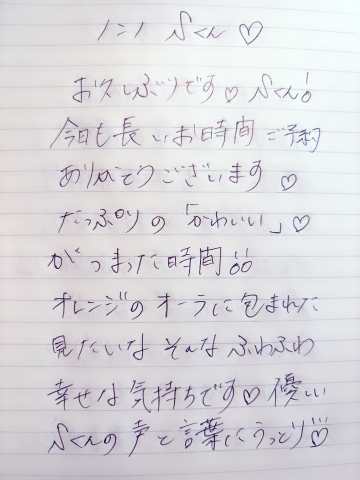 ノンノ Sくん♡
お久しぶりです♡Sくん!
今日も長いお時間ご予約
ありがとうございます♡
たっぷりの「かわいい」♡
がつまった時間!!
オレンジのオーラに包まれた
見たいなそんなふわふわ
幸せな気持ちです♡優しい
Sくんの声と言葉にうっとり♡